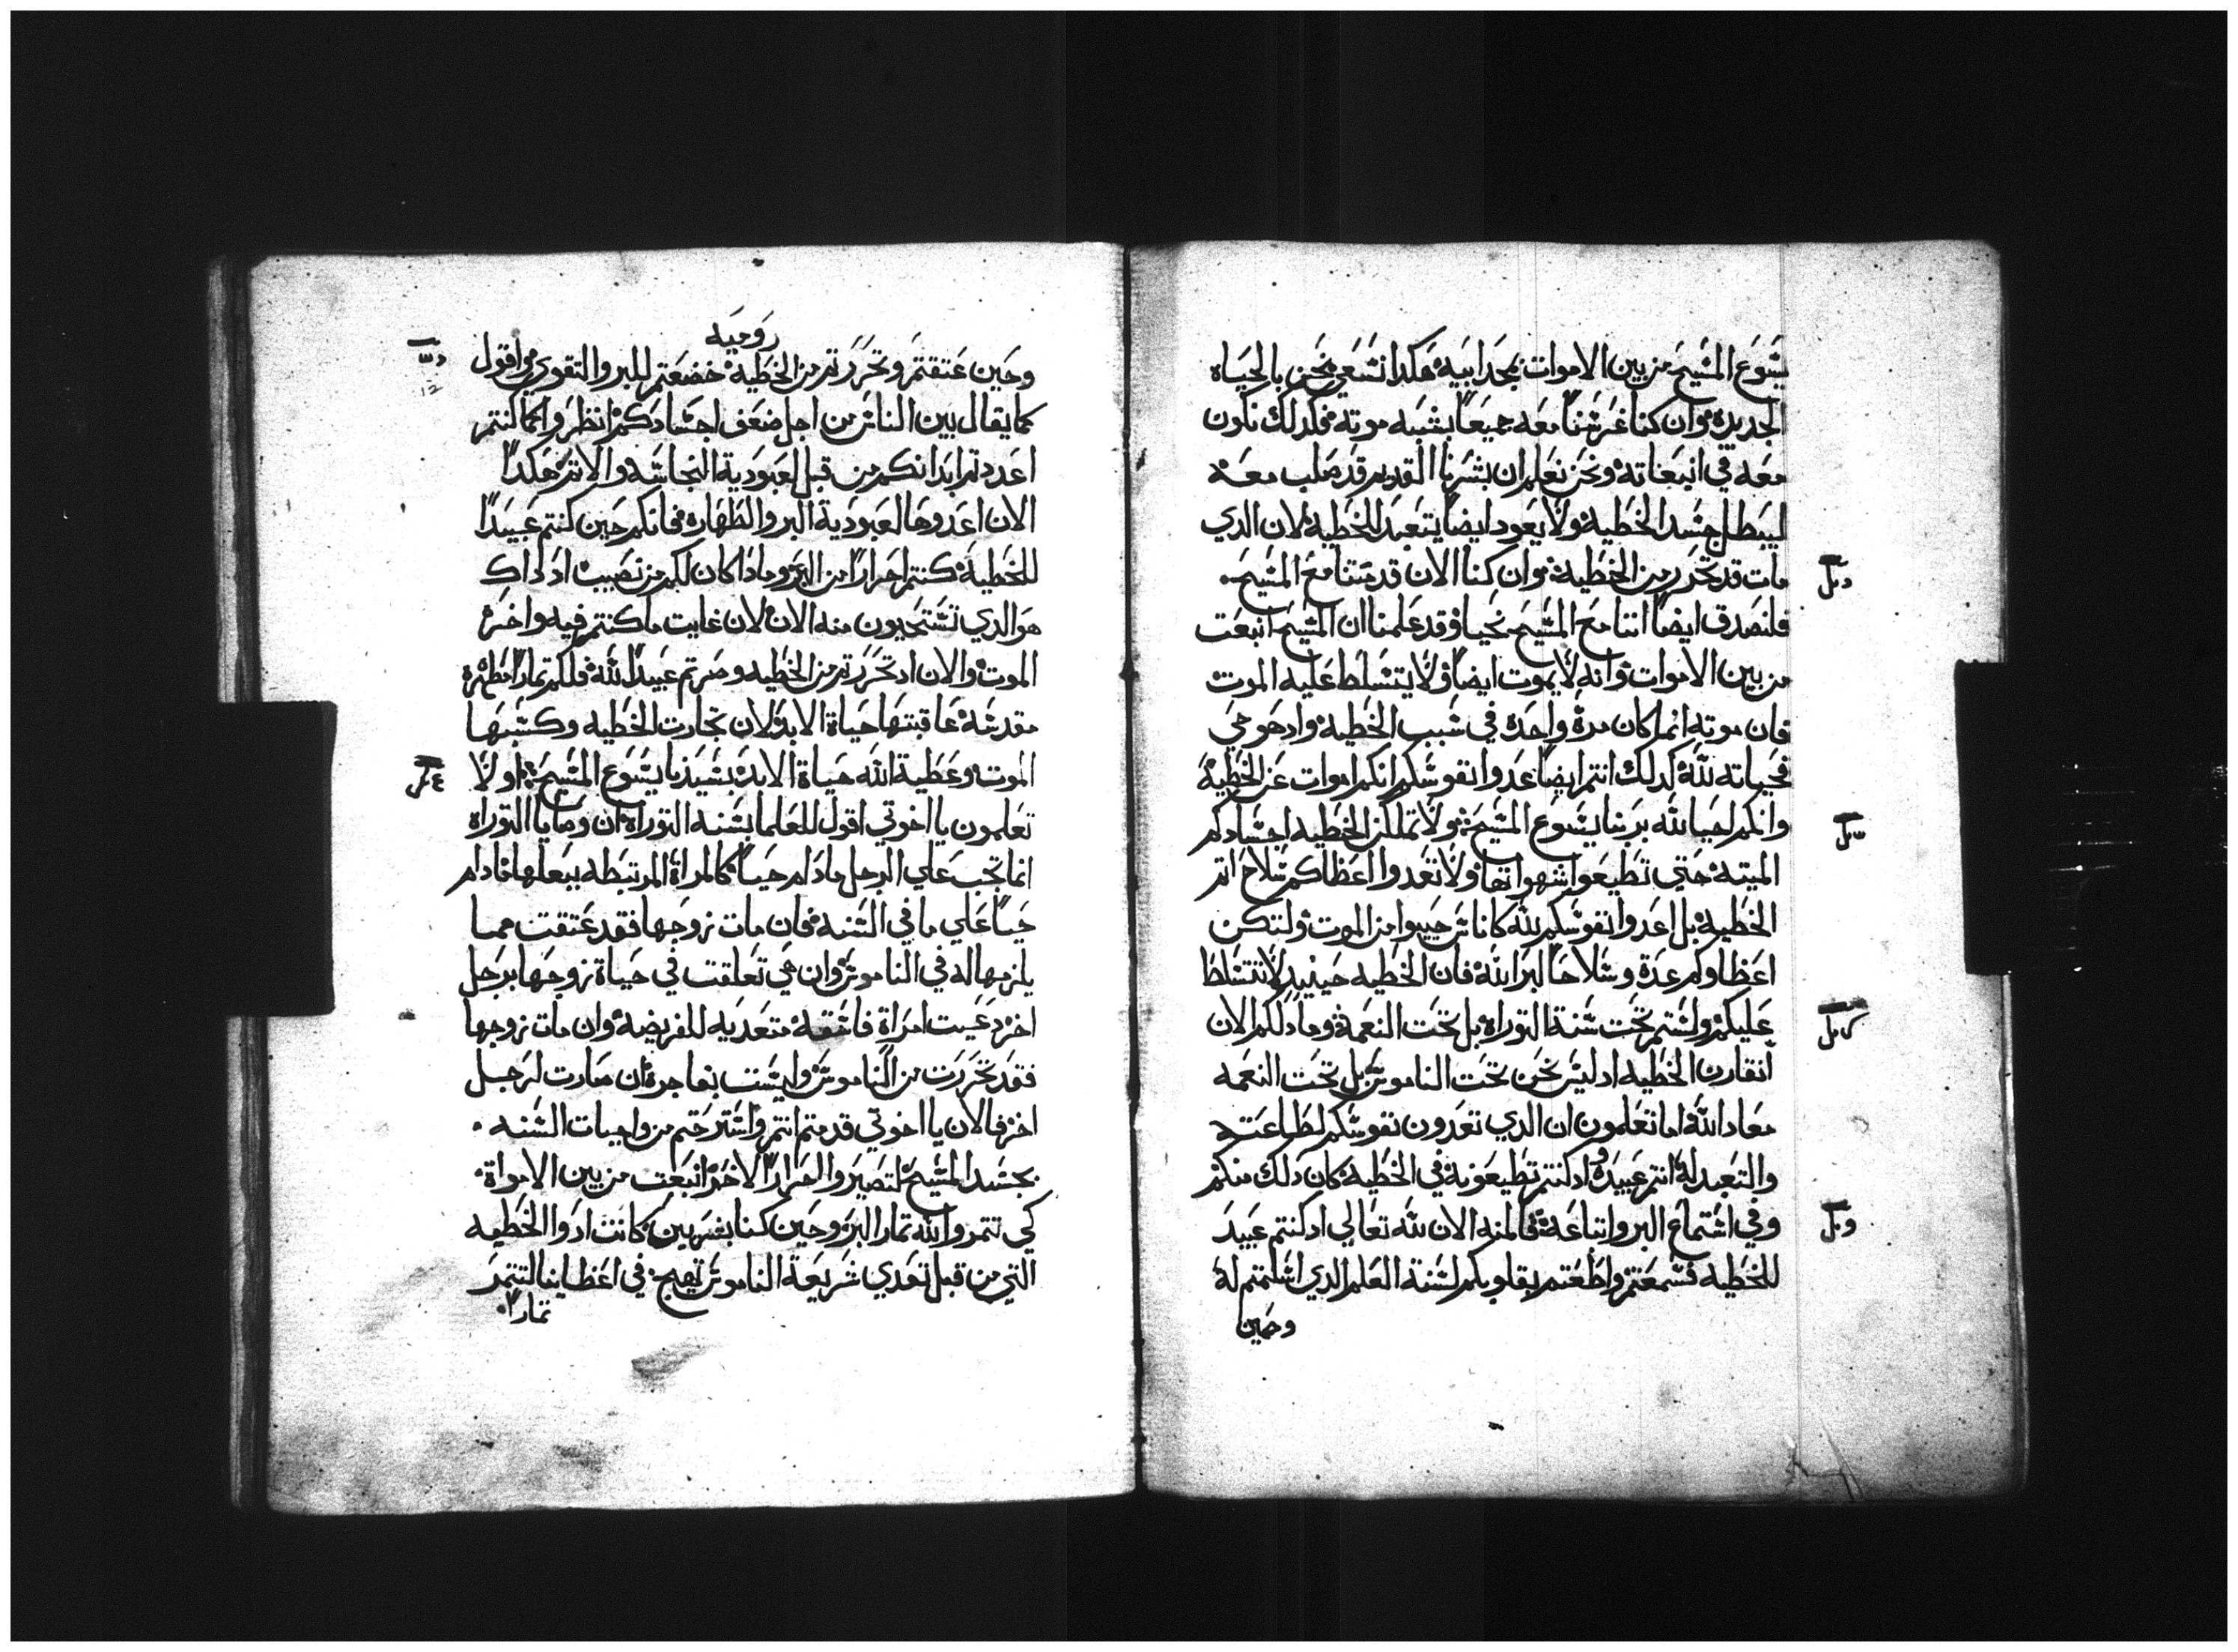 يشوع المشيح من بين الاموات بمجد ابيه هكدا نشعي نحن بالحياه
الجديده وان كنا غرشنا معه جميعا بشبه موته فكدلك نكون
معه في انبعاته ونحن نعلم ان بشرنا القديم قد صلب معه
ليبطل جشد الخطيه ولا يعود ايضا يتعبد للخطيه لان الدي
مات قد تحرر من الخطيه وان كنا الان قد متنا مع المشيح
فلنصدق ايضا اننا مع المشيح نحيا وقد علمنا ان المشيح انبعت
من بين الاموات وانه لا يموت ايضا ولا يتشلط عليه الموت
فان موته انما كان مرة واحده في شبب الخطيه واد هو حي
فحياته لله كدلك انتم ايضا عدوا نفوشكم انكم اموات عن الخطية
وانكم احيا لله بربنا يشوع المشيح ولا تملكن الخطيه اجشادكم
الميته حتي تطيعوا شهواتها ولا تعدوا اعظاكم شلاح اتم
الخطيه بل اعدوا نفوشكم لله كاناش حييوا من الموت ولتكن
اعظاوكم عدة وشلاحا لبر الله فان الخطيه حينيد لا تتشلط
عليكم ولشتم تحت شنة التوراه بل تحت النعمة وما دلكم الان
انقارن الخطيه اد ليش نحن تحت الناموش بل تحت النعمه
معاد الله اما تعلمون ان الدي تعدون نفوشكم لطاعته
والتعبد له انتم عبيده واد كنتم تطيعونه في الخطية كان دلك منكم
وفي اشتماع البر واتباعه فالمنه الان لله تعالي اد كنتم عبيد
للخطيه فشمعتم واطعتم بقلوبكم لشنة العلم الدي اشلمتم له
وحين
روميه
وحين عتقتم وتحررتم من الخطية خضعتم للبر والتقوي واقول
كما يقال بين الناش من اجل ضعف اجشادكم انظروا كما كنتم
اعددتم ابدانكم من قبل لعبودية النجاشه والاتم هكدا
الان اعدوها لعبودية البر والطهاره فانكم حين كنتم عبيدا
للخطية كنتم احرارا من البر وما دا كان لكم من نصيب اد داك
هو الدي تشتحيون منه الان لان غايت ما كنتم فيه واخره
الموت والان اد تحررتم من الخطيه وصرتم عبيدا لله فلكم تمارا مطهره
مقدشه عاقبتها حياة الابد لان تجارت الخطيه وكشبها
الموت وعطية الله حياة الابد بشيدنا يشوع المشيح اولا
تعلمون يا اخوتي اقول للعلما بشنه التوراه ان وصايا التوراه
انما تجب علي الرجل ما دام حيا كالمراة المرتبطه ببعلها ما دام
حيا علي ما في الشنه فان مات زوجها فقد عتقت مما
يلزمها له في الناموش وان هي تعلقت في حياة زوجها برجل
اخر دعيت امراة فاشقه متعديه للفريضه وان مات زوجها
فقد تحررت من الناموش وليشت بفاجره ان صارت لرجل
اخر فالان يا اخوتي قد متم انتم واشترحتم من واجبات الشنه
بجشد المشيح لتصيروا الاخر انبعت من بين الامواة
كي تتمروا لله تمار البر وحين كنا بشريين كانت ادوا الخطيه
التي من قبل تعدي شريعة الناموش تهيج في اعظاينا لنتمر
تمارا